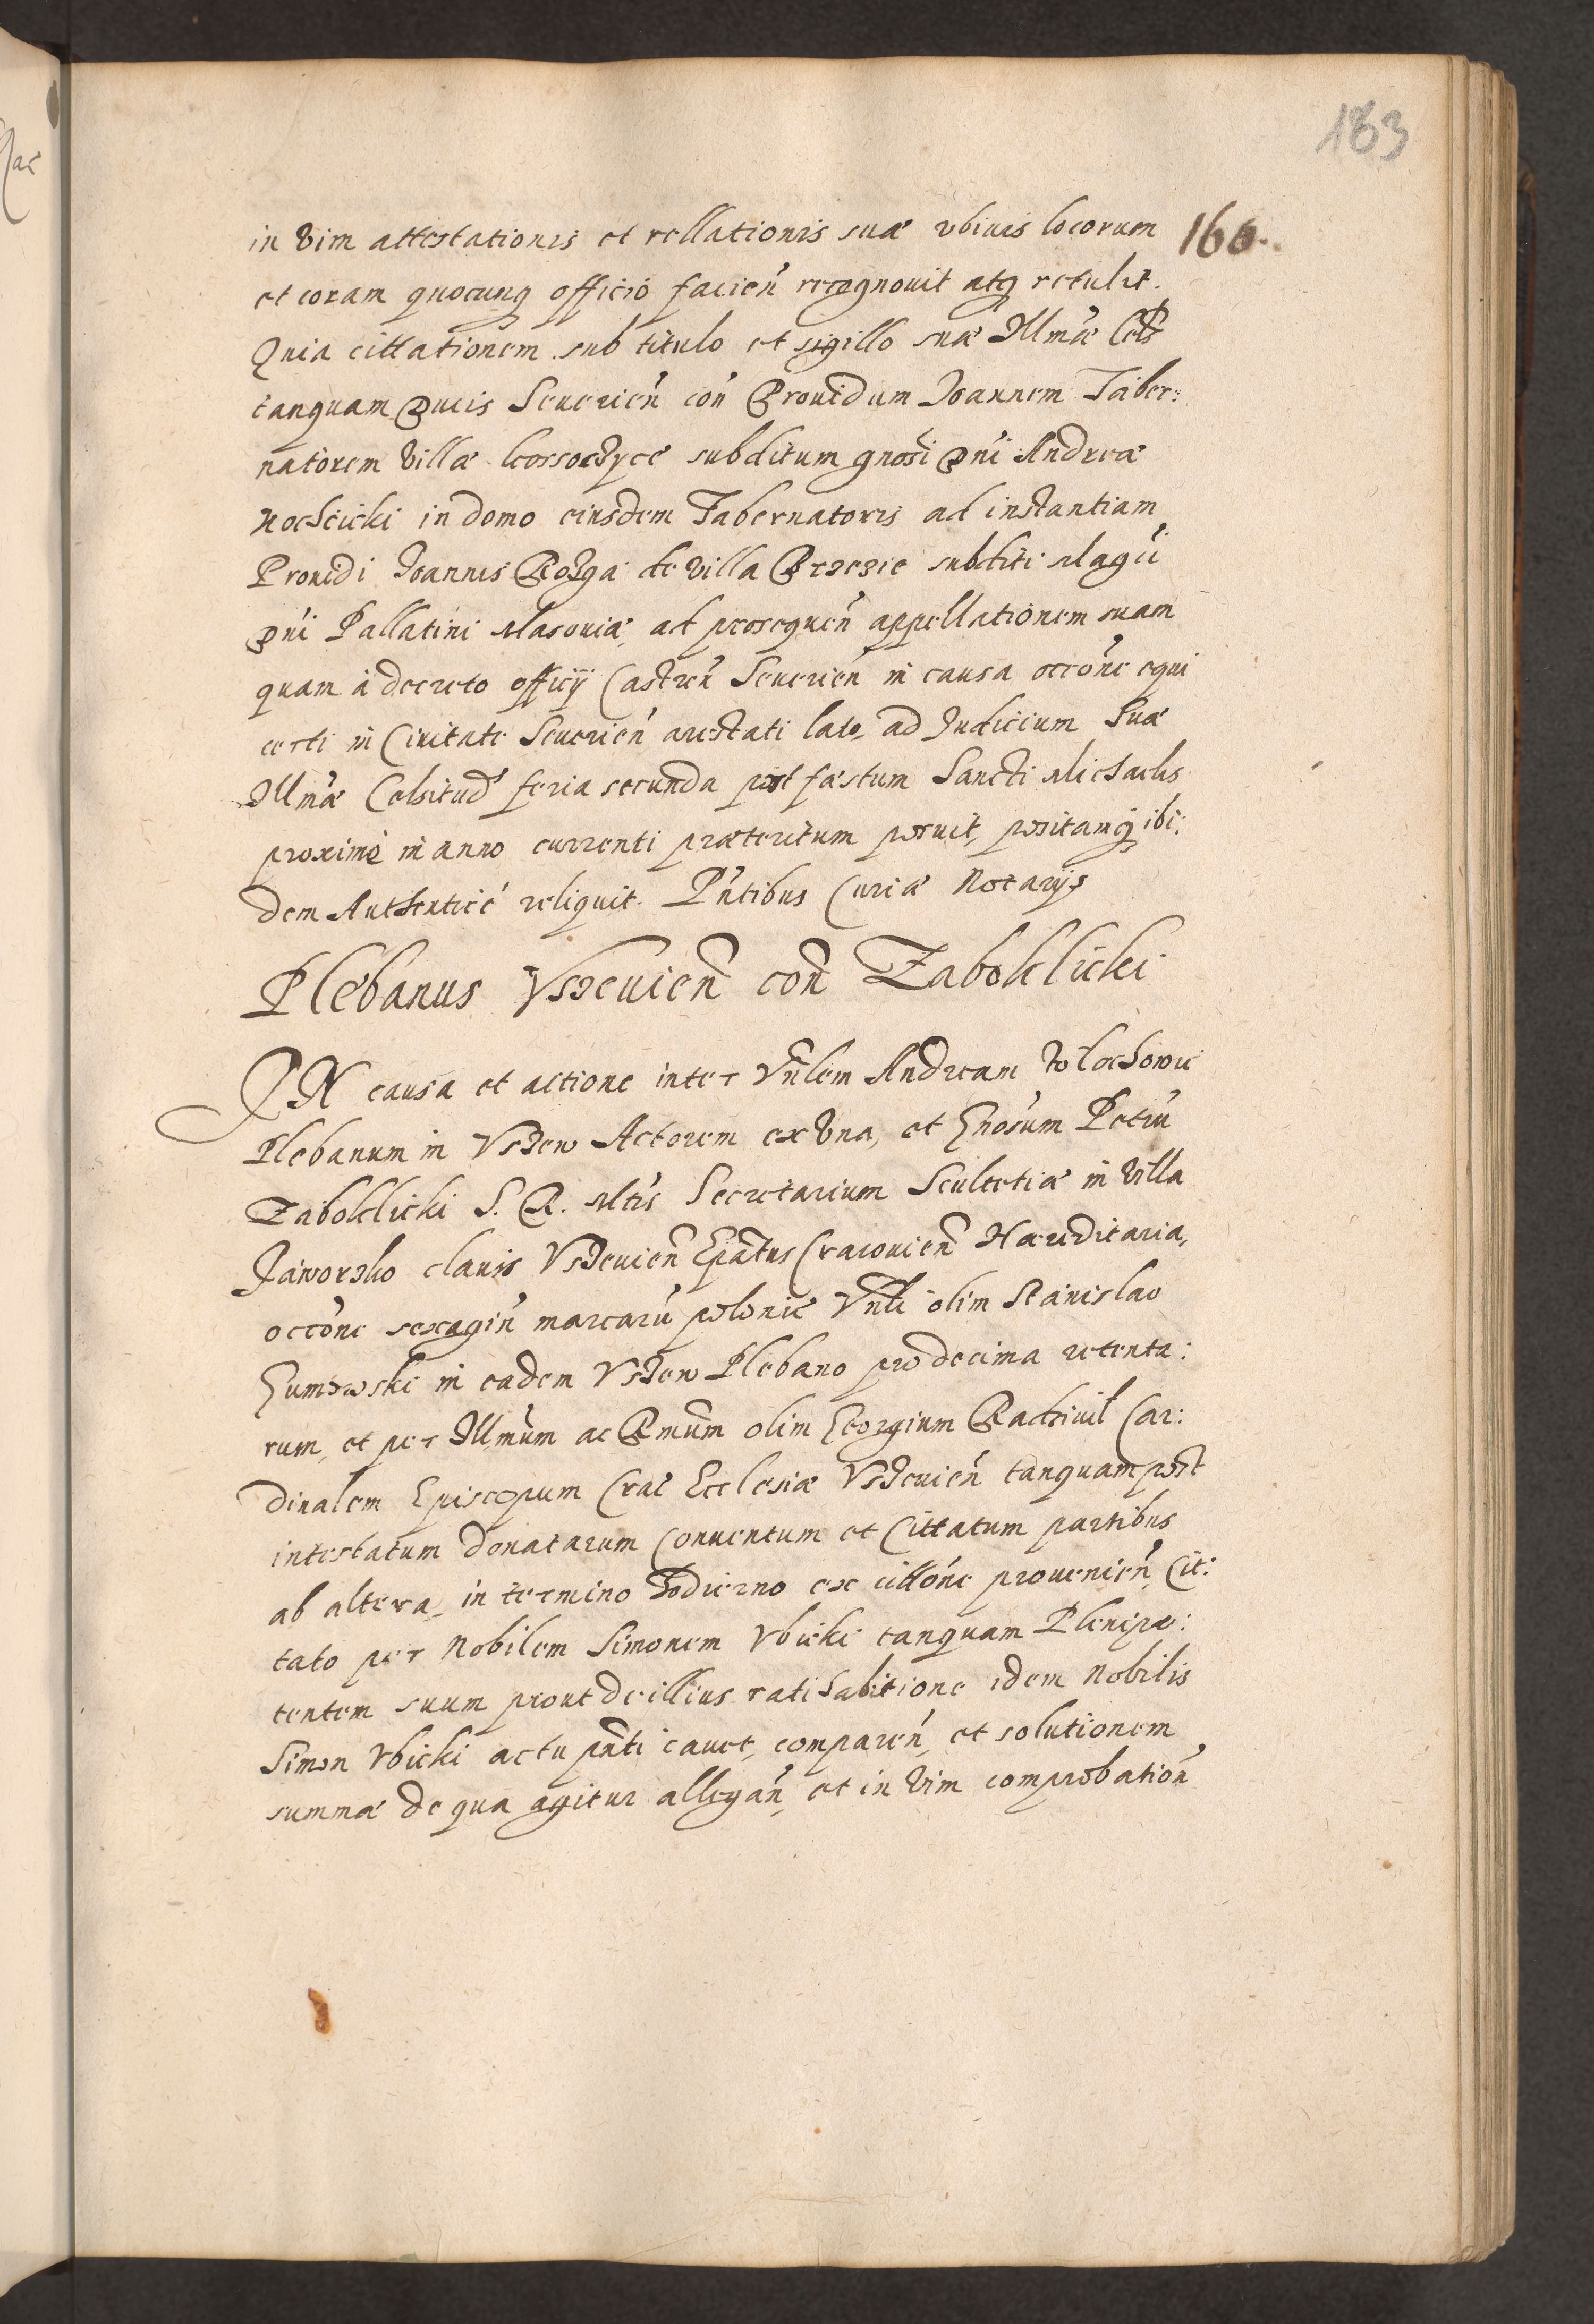 183
in vim attestationis et rellationis suæ vbiuis locorum 160.
et coram quocunq officio facien̄ recognouit atq retulit.
Quia cittationem sub titulo et sigillo suæ Illmæ Cels
tanquam Ducis Seuerien̄ con̄ Prouidum Joannem Taber:
natorem villæ Kossoczyce subditum gnosi Dni Andreæ
Kochcicki in domo eiusdem Tabernatoris ad instantiam
Prouidi Joannis Rozga de villa Brzezie subditi Magci
Dni Pallatini Masouiæ, ad prosequen̄ appellationem suam
quam à decreto officij Castren̄ Seuerien̄ in causa occōne equi
certi in Ciuitate Seuerien̄ arestati lato, ad Judicium Suæ
Illmæ Celsitud feria secunda post fæstum Sancti Michaelis
proximè in anno currenti præteritum posuit, positamq ibi:
dem Authenticè reliquit. Pn̄tibus Curiæ Notarijs
Plebanus Vszeuien̄ con̄ Zaboklicki
IN causa et actione inter Vn̄lem Andream Wlochowic
Plebanum in Vszew Actorem ex vna, et Gnosum Petrū
Zaboklicki S. R. Mtis Secretarium Scultetiæ in villa
Jaworsko clauis Vszeuien̄ Ep̄atus Cracouien̄ Hæreditaria,
occōne sexagin̄ marcarū polonic Vn̄li olim Stanislao
Gumowski in eadem Vszew Plebano pro decima retenta:
rum, et per Illmum ac Rmum olim Georgium Radziuil Car:
dinalem Episcopum Crac Ecclesiæ Vszeuien̄ tanquam post
intestatum donatarum Conuentum et Cittatum partibus
ab altera, in termino hodierno ex cittōne prouenien̄, Cit:
tato per Nobilem Simonem Vbicki tanquam Plenipo:
tentem suum prout de illius ratihabitione idem Nobilis
Simon Vbicki actu pn̄ti cauet, comparen̄, et solutionem
summæ de qua agitur allegan̄, et in vim comprobation̄